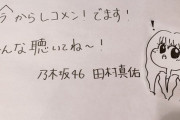 今からレコメン！でます！
んな聴いてね〜！
乃木坂46 田村真佑